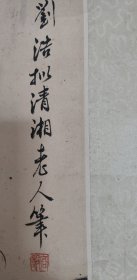 劉浩拟清湘老人筆